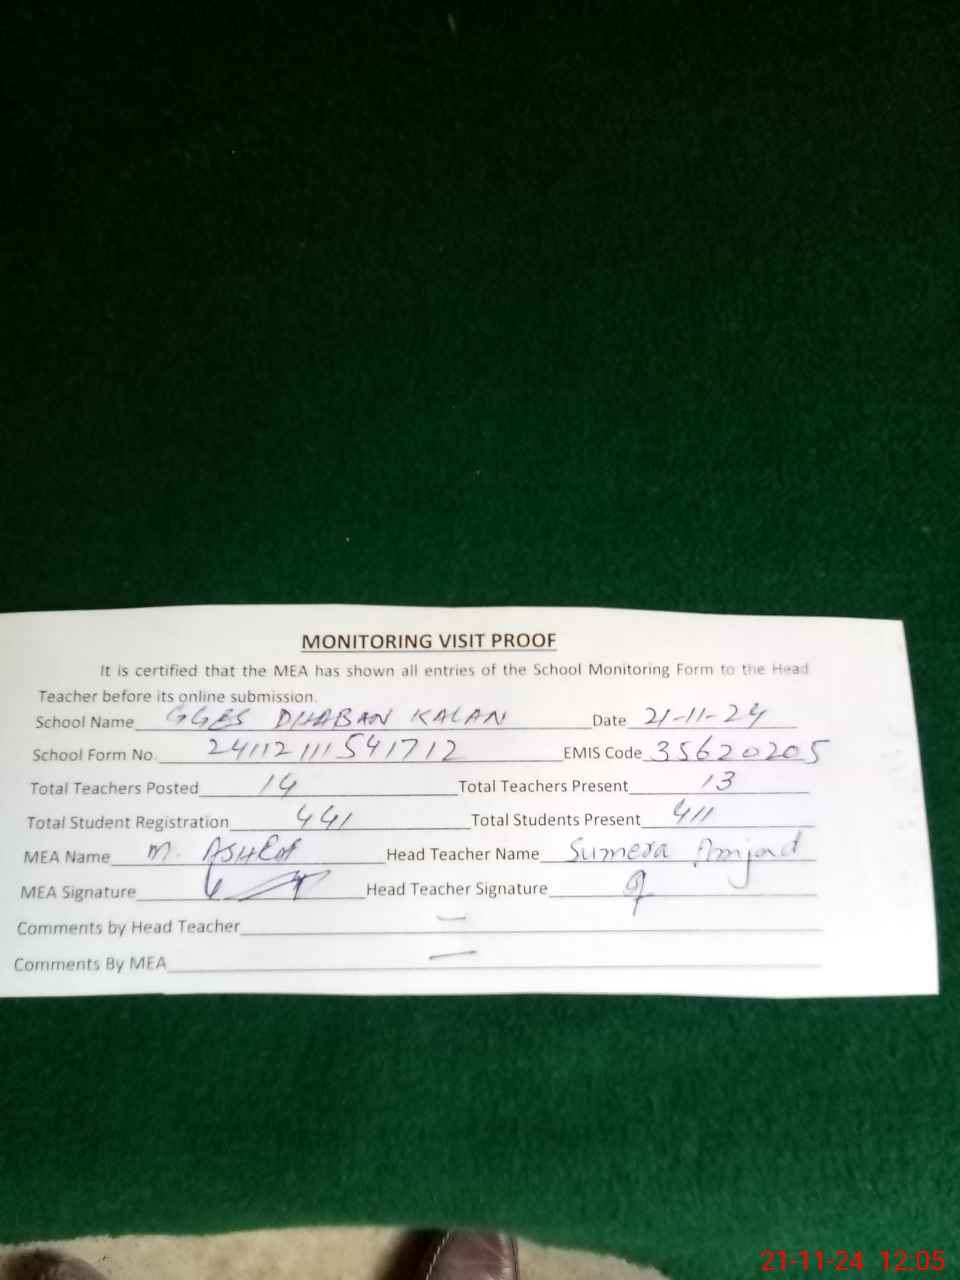 MONITORING VISIT PROOF
It is certified that the MEA has shown all entries of the School Monitoring Form to the Head
Teacher before its online submission.
School Name GGES DHABAN KALAN Date 21-11-24
School Form No. 24112111541712 EMIS Code 35620205
Total Teachers Posted 14 Total Teachers Present 13
Total Student Registration 441 Total Students Present 411
MEA Name M. ASHRAF Head Teacher Name Sumera Amjad
MEA Signature Head Teacher Signature
Comments by Head Teacher —
Comments By MEA —
21-11-24 12:05